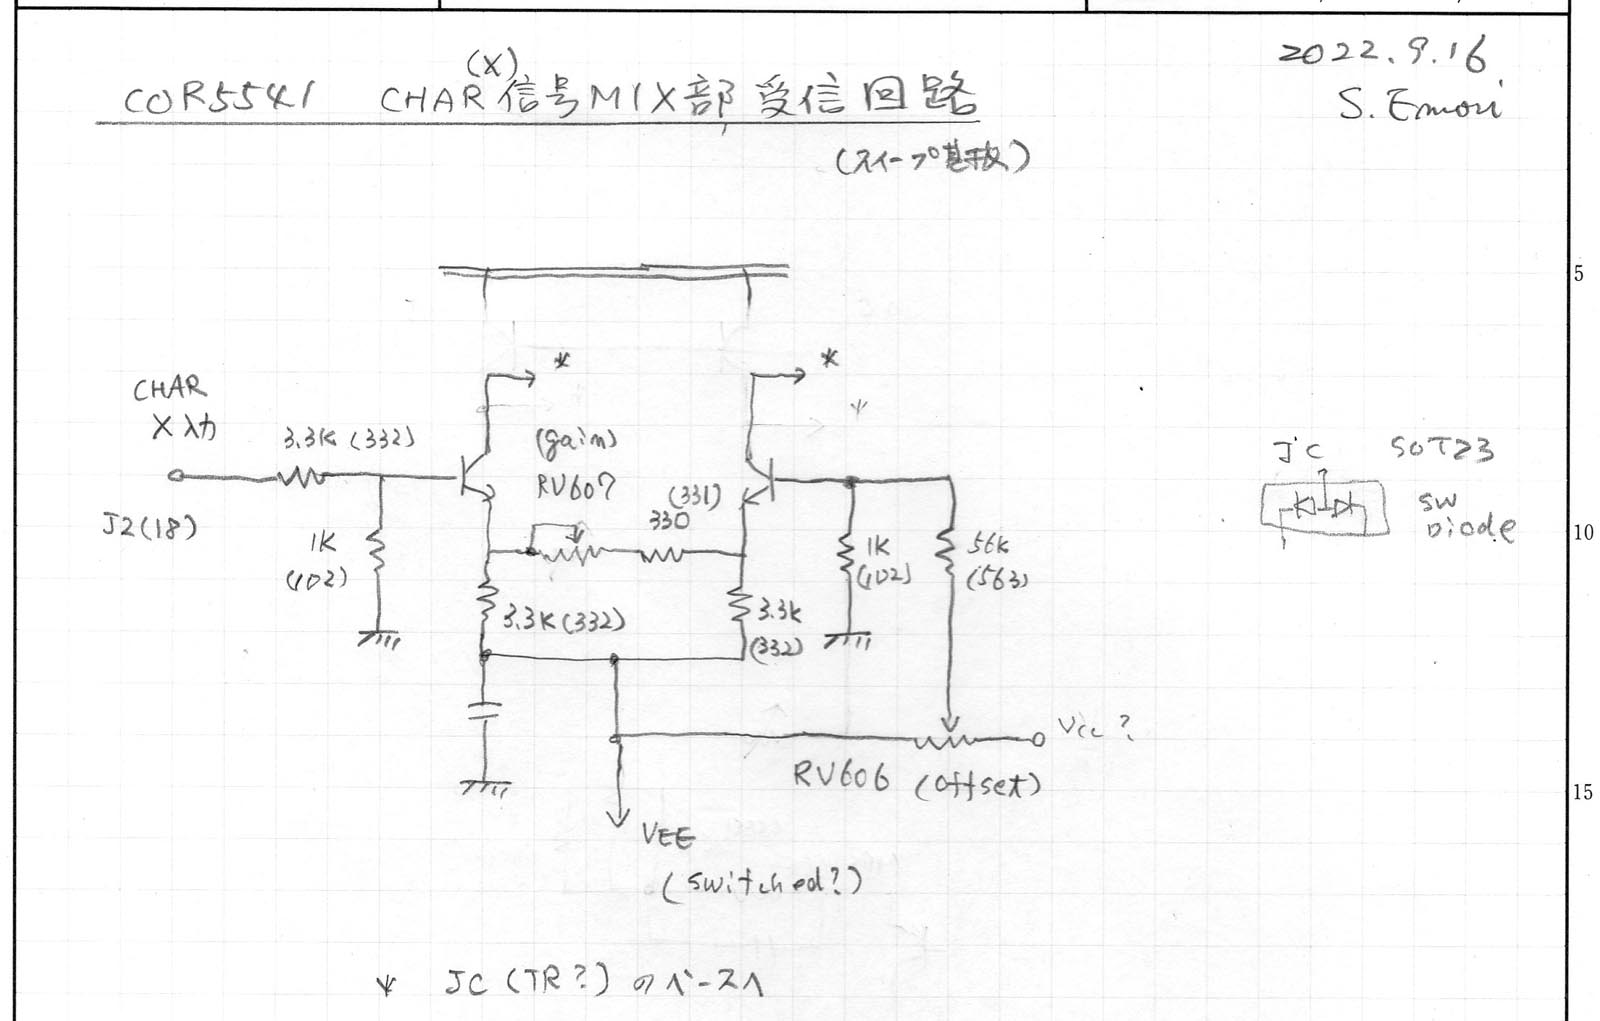 2022.9.16
S. Emori
COR5541 CHAR(X)信号MIX部受信回路
(スイープ基板)
5
*
*
CHAR
X入力
3.3K (332)
(gain)
RV607
(331)
330
JC SOT23
SW
Diode
J2(18)
1K
(102)
1K
(102)
56K
(563)
10
3.3K (332)
3.3K
(332)
Vcc?
RV606 (offset)
15
VEE
(Switched?)
* JC (TR?) のベースへ